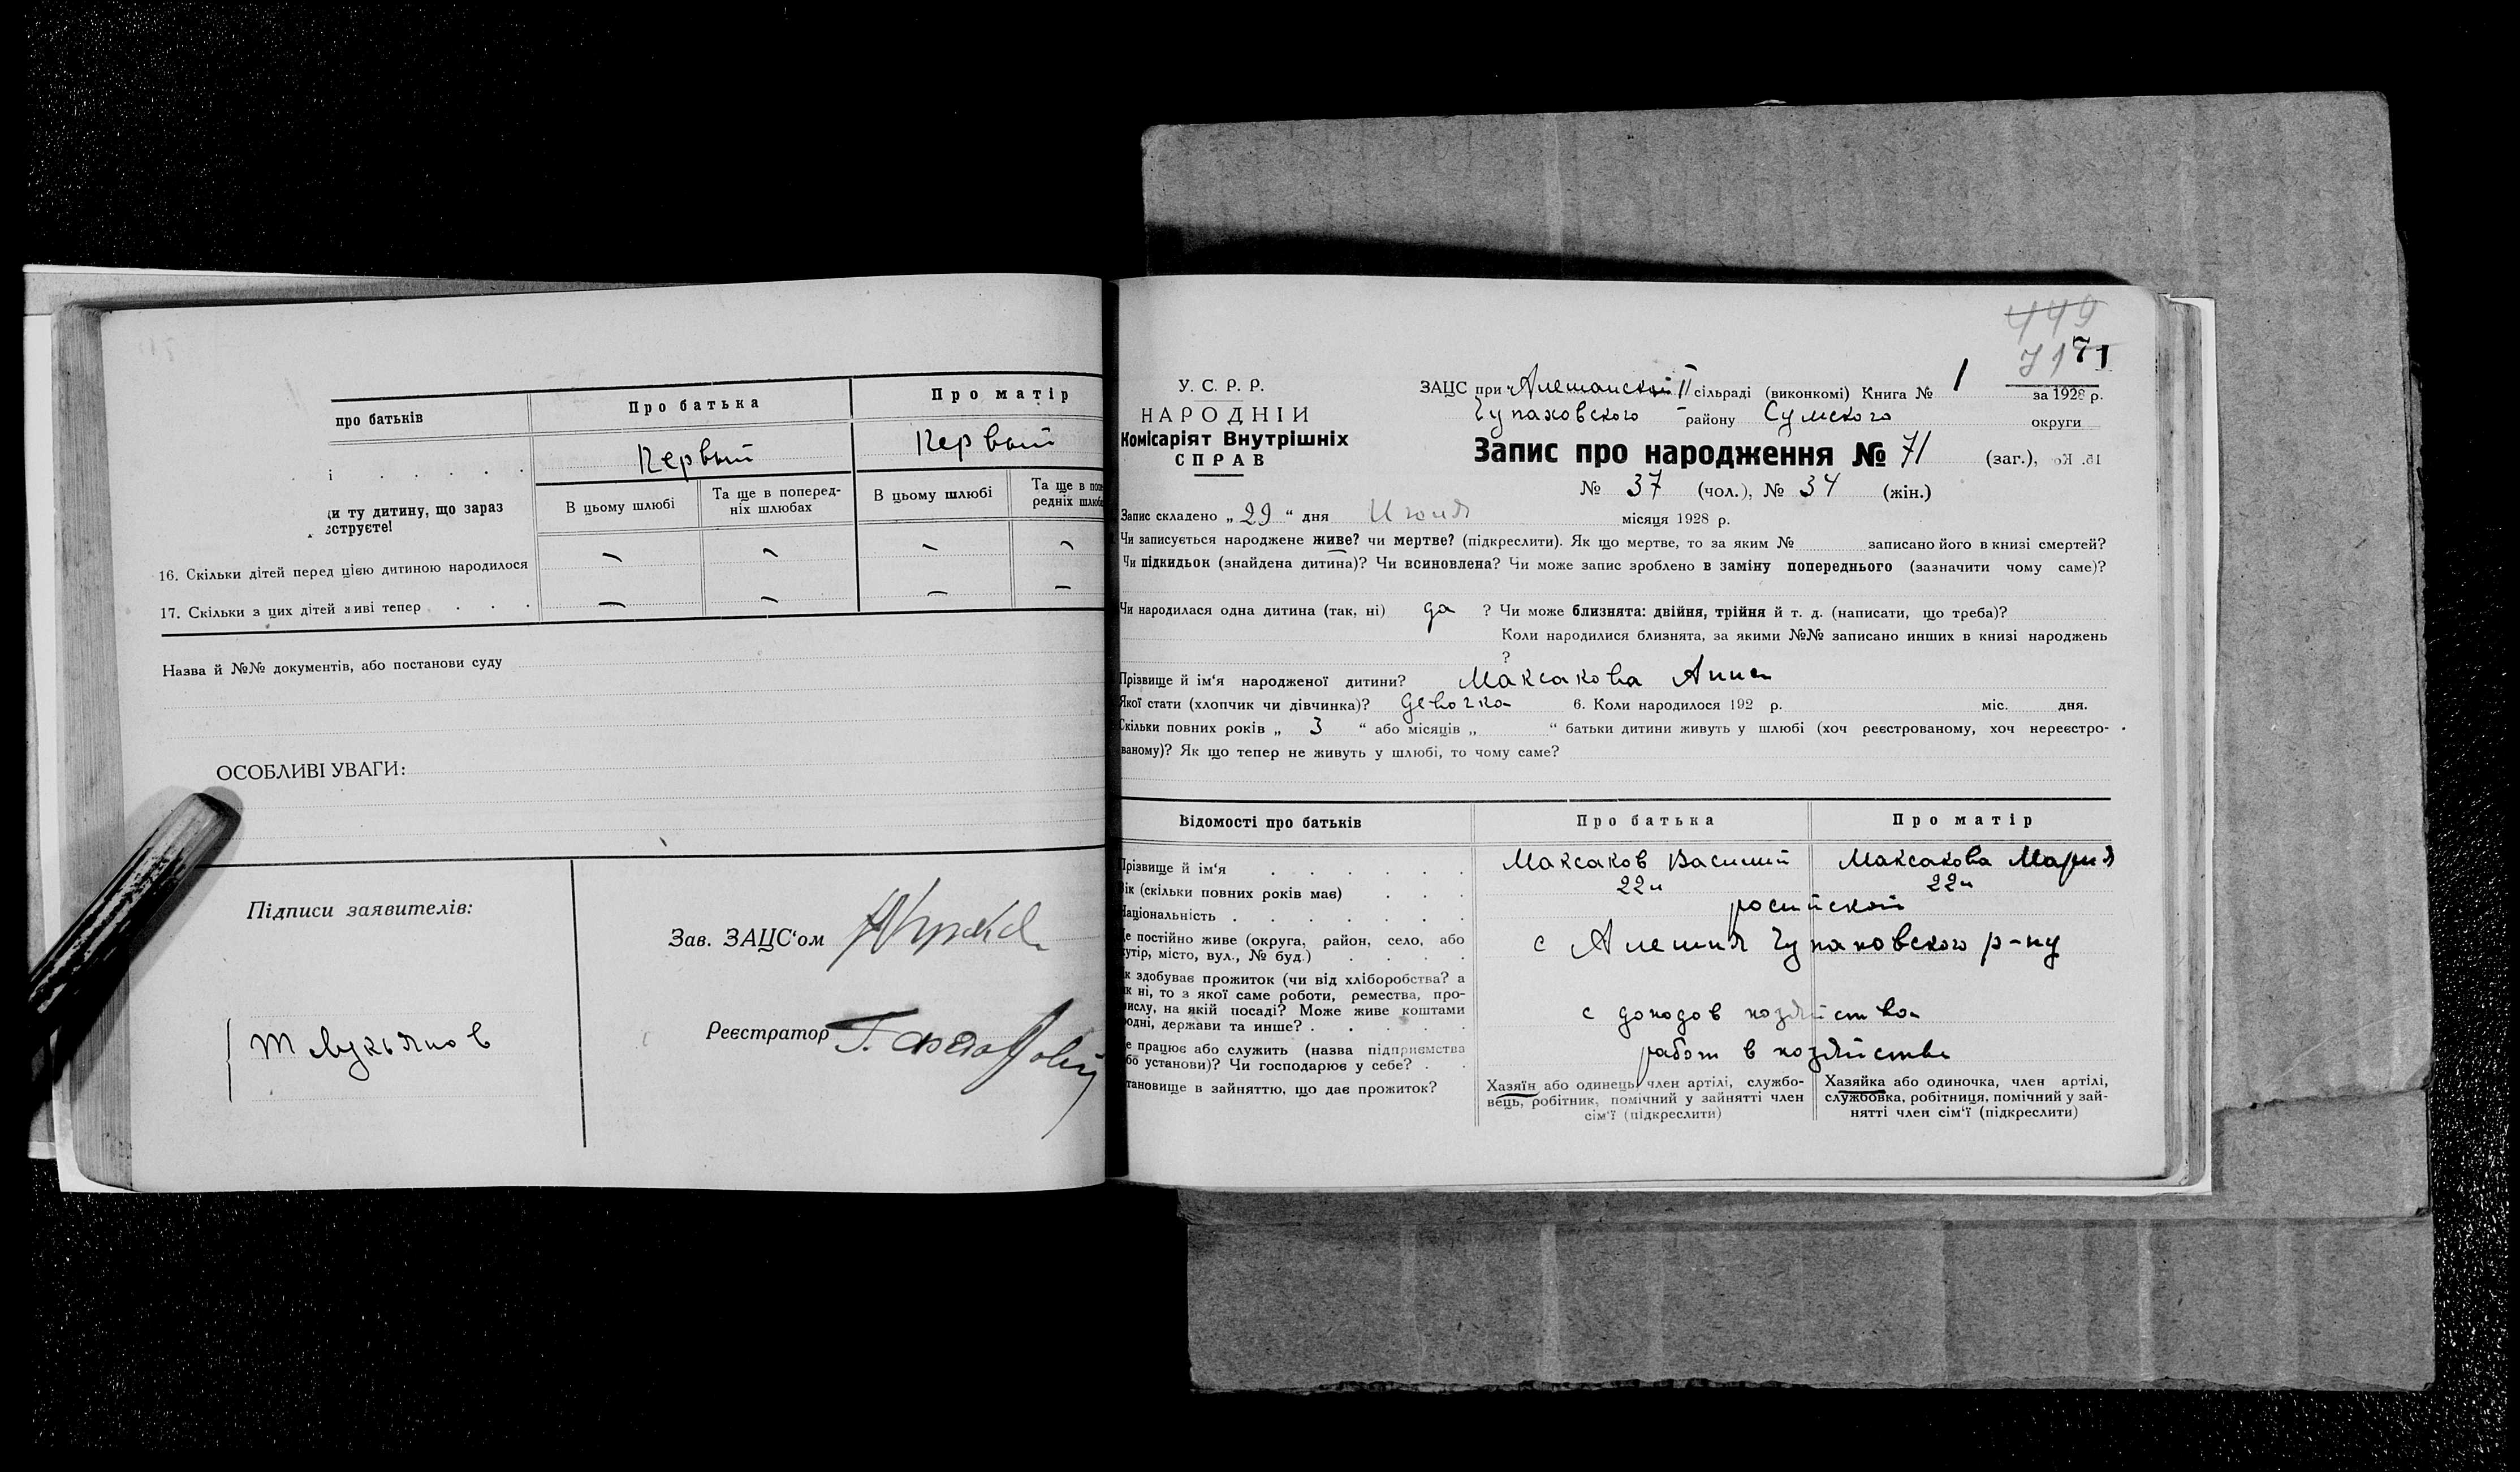 про батьків
Про батька
Про матір
і . . . . .
Первый
Первый
ди ту дитину, що зараз
єструєте!
В цьому шлюбі
Та ще в поперед-
ніх шлюбах
В цьому шлюбі
Та ще в поп
редніх шлюб
16. Скільки дітей перед цією дитиною народилося
17. Скільки з цих дітей живі тепер . . .
Назва й №№ документів, або постанови суду
ОСОБЛИВІ УВАГИ:
Підписи заявителів:
Зав. ЗАЦС'ом
Т Лукьянов
Реєстратор
449
71 71
У. С. Р. Р.
НАРОДНІЙ
Комісаріят Внутрішніх
СПРАВ
ЗАЦС при Алешанской II сільраді (виконкомі) Книга № 1 за 1928 р.
Чупаховского району Сумского округи
Запис про народження № 71 (заг.),
№ 37 (чол.), № 34 (жін.)
Запис складено „ 29 “ дня Июля місяця 1928 р.
Чи записується народжене живе? чи мертве? (підкреслити). Як що мертве, то за яким № записано його в книзі смертей?
Чи підкидьок (знайдена дитина)? Чи всиновлена? Чи може запис зроблено в заміну попереднього (зазначити чому саме)?
Чи народилася одна дитина (так, ні) да ? Чи може близнята: двійня, трійня й т. д. (написати, що треба)?
Коли народилися близнята, за якими №№ записано инших в книзі народжень
?
Прізвище й ім'я народженої дитини? Максакова Анна
Якої стати (хлопчик чи дівчинка)? девочка 6. Коли народилося 192 р. міс. дня.
Скільки повних років „ 3 “ або місяців „ “ батьки дитини живуть у шлюбі (хоч реєстрованому, хоч нереєстро-
ваному)? Як що тепер не живуть у шлюбі, то чому саме?
Відомості про батьків
Про батька
Про матір
Прізвище й ім'я . . . . . .
Максаков Василий
Максакова Мария
Вік (скільки повних років має) . . .
22
22
Національність . . . . . . .
росийской
Де постійно живе (округа, район, село, або
хутір, місто, вул., № буд.) . . . .
с Алешня Чупаховского р-ну
Як здобуває прожиток (чи від хліборобства? а
як ні, то з якої саме роботи, ремества, про-
мислу, на якій посаді? Може живе коштами
родні, держави та инше? . . . . .
с доходов хозяйства
Де працює або служить (назва підприємства
або установи)? Чи господарює у себе? . .
работ в хозяйстве
Становище в зайняттю, що дає прожиток?
Хазяїн або одинець, член артілі, службо-
вець, робітник, помічний у зайнятті член
сім'ї (підкреслити)
Хазяйка або одиночка, член артілі,
службовка, робітниця, помічний у зай-
нятті член сім'ї (підкреслити)